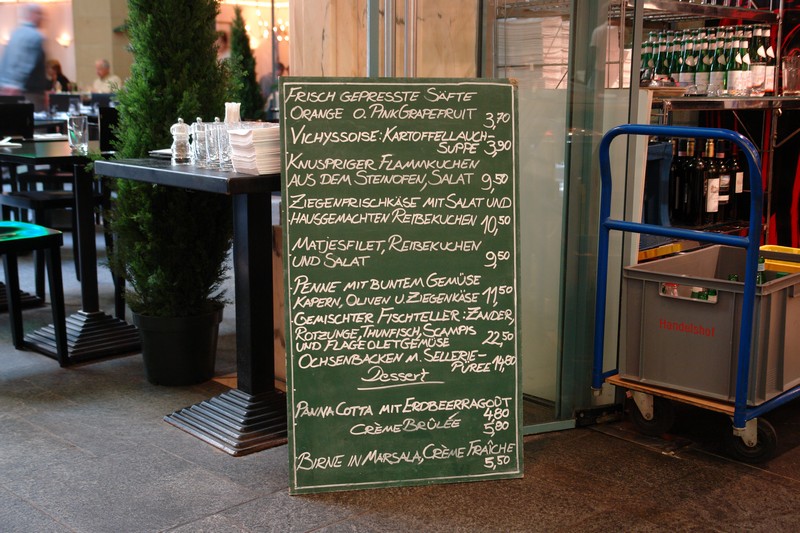 FRISCH GEPRESSTE SÄFTE
ORANGE O. PINKGRAPEFRUIT 3,70
VICHYSSOISE: KARTOFFELLAUCH-
SUPPE 3,90
KNUSPRIGER FLAMMKUCHEN
AUS DEM STEINOFEN, SALAT 9,50
ZIEGENFRISCHKÄSE MIT SALAT UND
HAUSGEMACHTEN REIBEKUCHEN 10,50
MATJESFILET, REIBEKUCHEN
UND SALAT 9,50
PENNE MIT BUNTEM GEMÜSE
KAPERN, OLIVEN U. ZIEGENKÄSE 11,50
GEMISCHTER FISCHTELLER: ZANDER,
ROTZUNGE, THUNFISCH, SCAMPIS
UND FLAGEOLETGEMÜSE 22,50
OCHSENBACKEN M. SELLERIE-
PUREE 14,80
Dessert
PANNA COTTA MIT ERDBEERRAGOÛT
4,80
CRÈME BRÛLÉE 5,80
BIRNE IN MARSALA, CRÈME FRAÎCHE
5,50
Handelshof